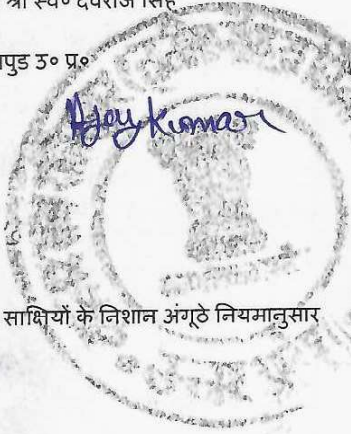 श्री स्व० देवराज सिंह
पुड उ० प्र०
Ajay Kumar
साक्षियों के निशान अंगूठे नियमानुसार